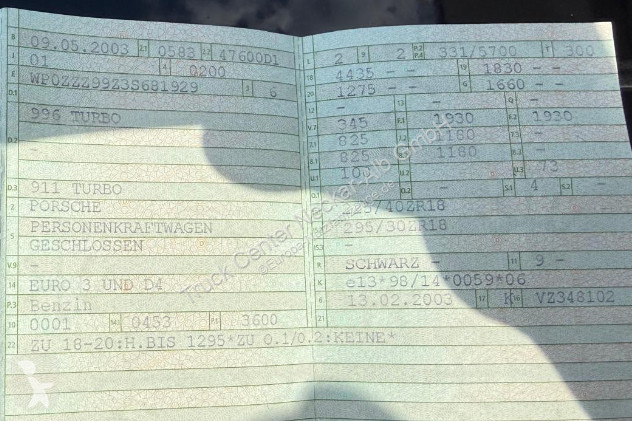 B 09.05.2003 2.1 0583 2.2 47600D1
J 01 4 0200
E WP0ZZZ99Z3S681929 3 6
D.1
996 TURBO
D.2
-
D.3 911 TURBO
2 PORSCHE
5 PERSONENKRAFTWAGEN
GESCHLOSSEN
V.9 -
14 EURO 3 UND D4
P.3 Benzin
10 0001 14.1 0453 P.1 3600
22 ZU 18-20:H.BIS 1295*ZU O.1/O.2:KEINE*
L 2 9 2 P.2 P.4 331/5700 T 300
18 4435 - - 19 1830 - -
20 1275 - - G 1660 - -
12 - 13 - Q -
V.7 345 F.1 1930 F.2 1930
7.1 825 7.2 1180 7.3 -
8.1 825 8.2 1180 8.3 -
U.1 U.3 73
O.1 - O.2 - S.1 4 S.2 -
/40ZR18
295/30ZR18
-
R SCHWARZ - 11 9 -
K e13*98/14*0059*06
6 13.02.2003 17 K 16 VZ348102
21
Truck Center Meckatrub GmbH